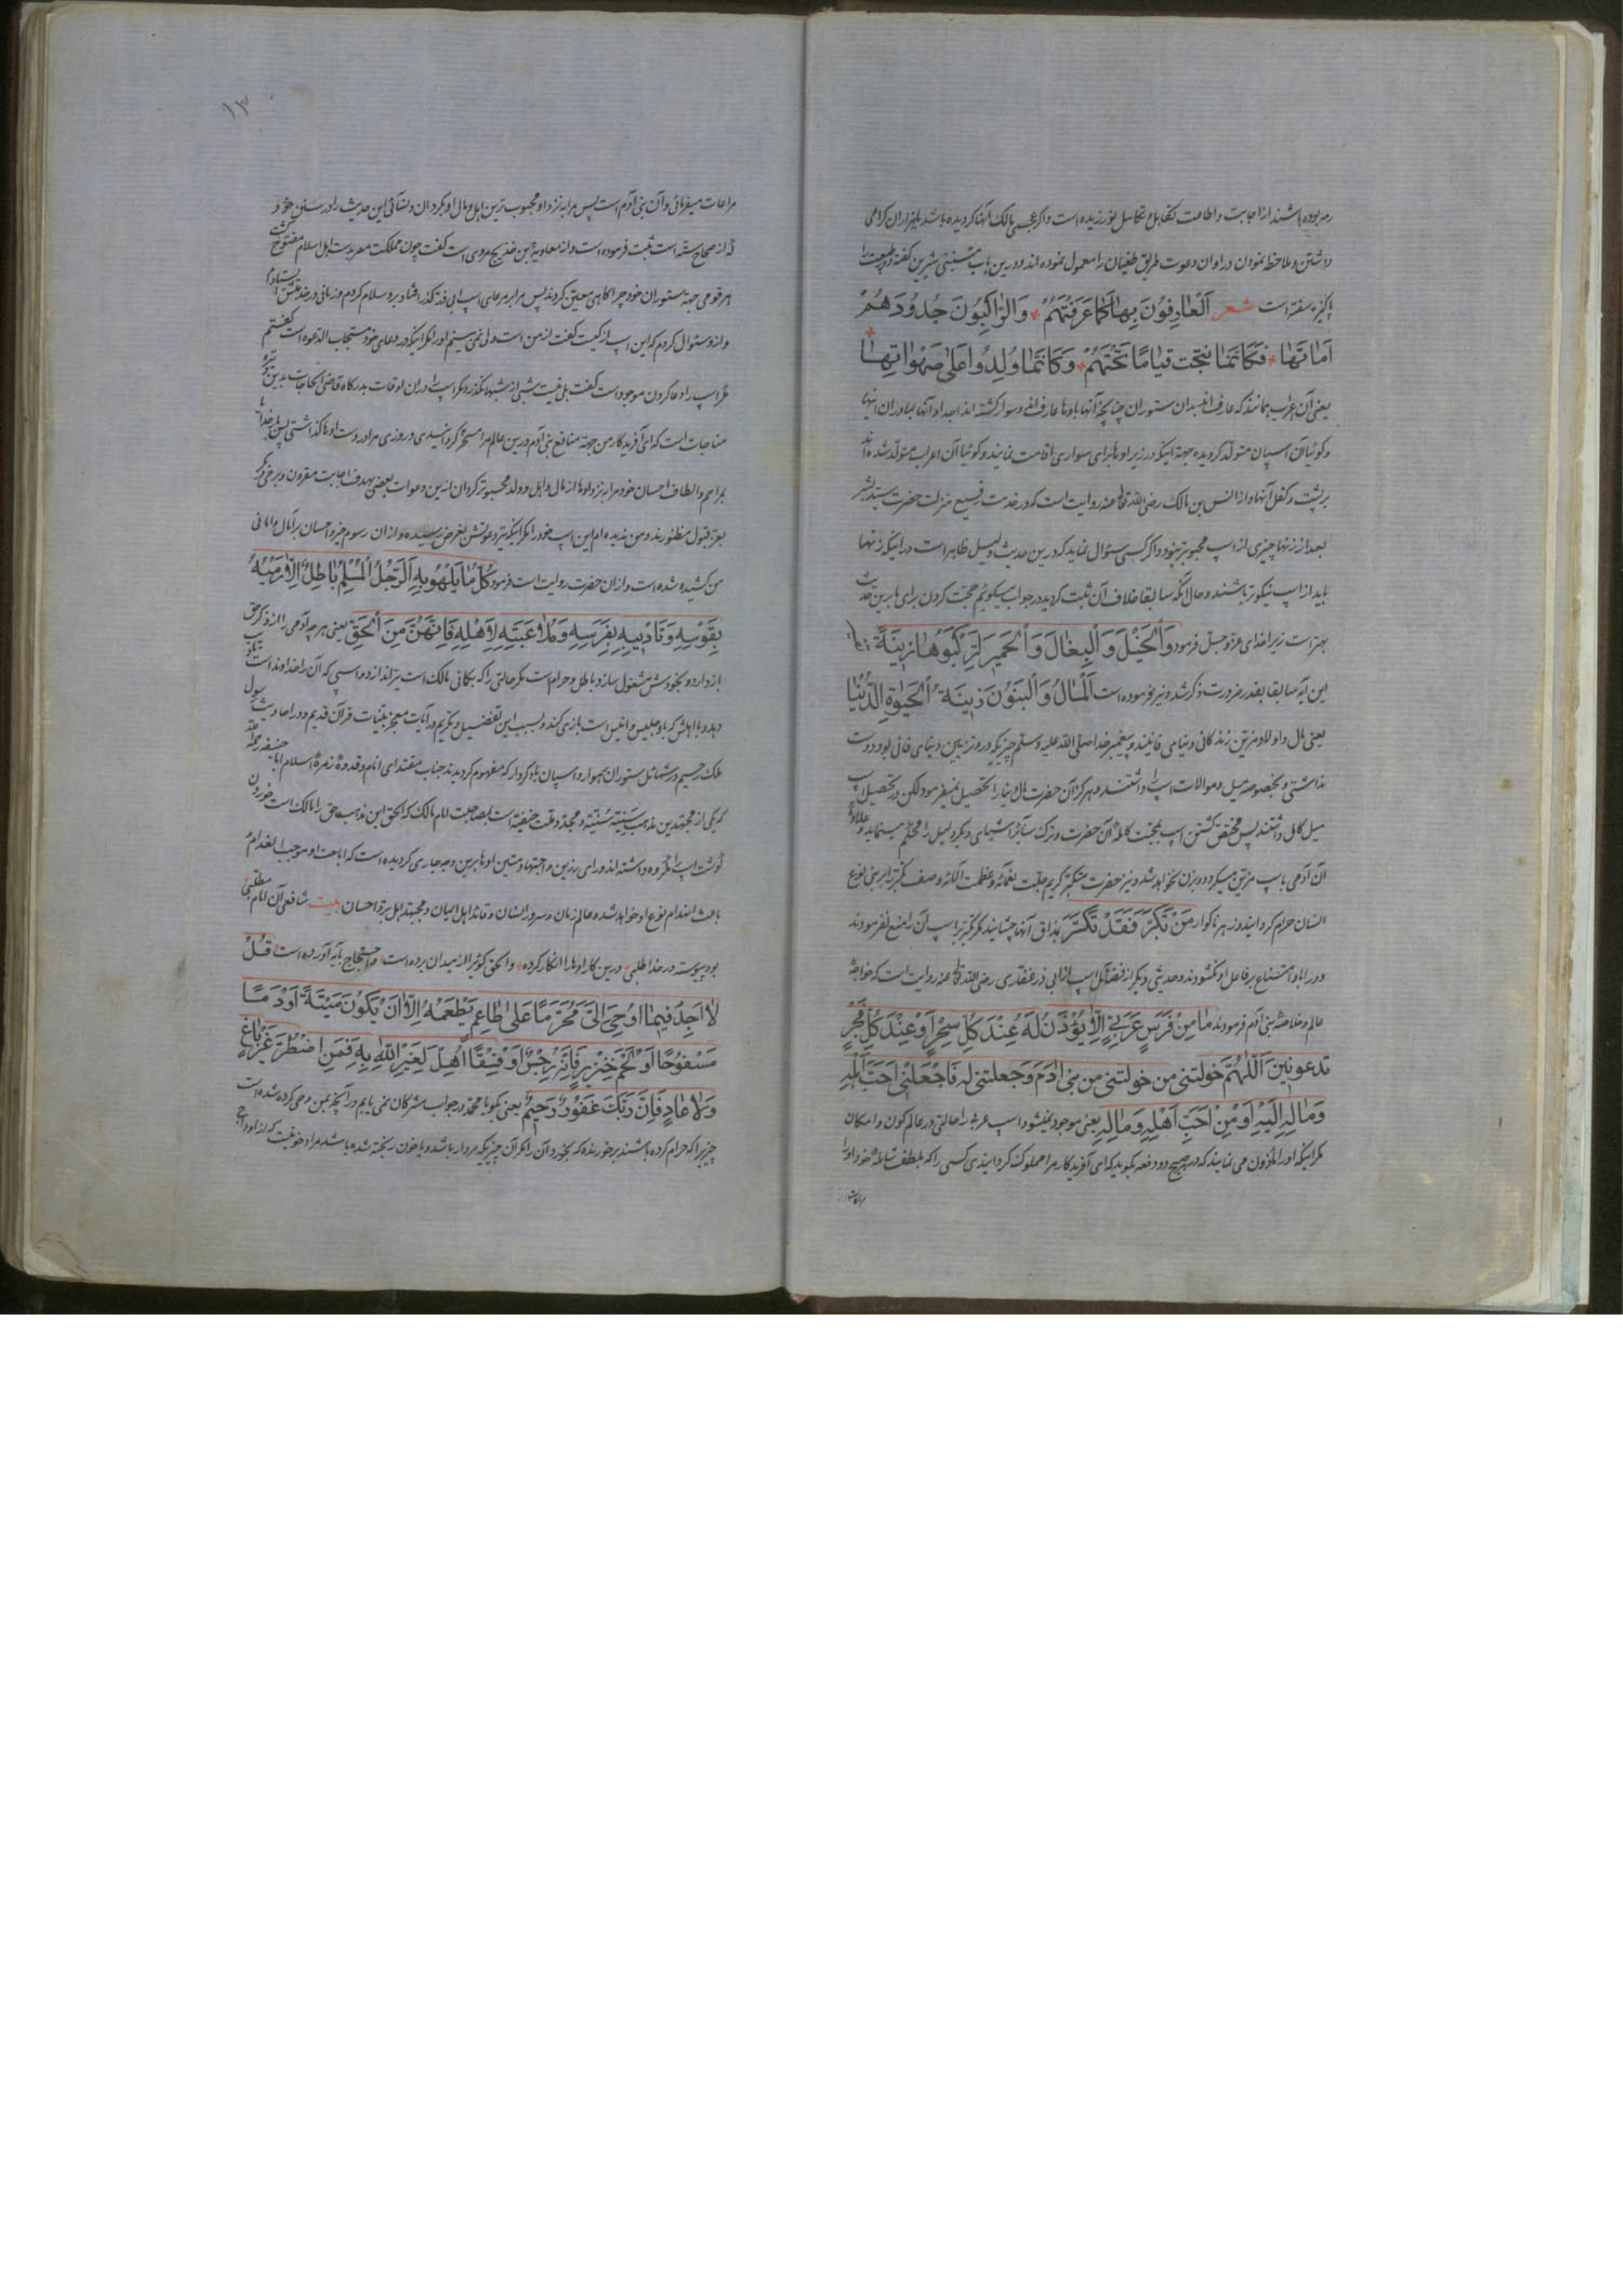 رمه بوده باشند از اجابت و اطاعت تکاهل و تکاسل نورزیده است و اگر عجمی مالک آنها کردیده باشد با هزاران کرامی
داشتن و ملاحظه نمودن در اوان دعوت طریق طغیان را معمول نموده اند و درین باب متنبی شیرین کفته و در
پاکیزه سفته است شعر اَلْعارِفُونَ بِها کَما عَرَفَتْهُمْ وَالرّاکِبُونَ جُدُودَهُمْ
اُمّاتَها فَکَاَنَّما نُتِجَتْ قِیامًا تَحْتَهُمْ وَکَاَنَّما وُلِدُوا عَلی صَهَواتِها
یعنی آن اعراب همانند که عارف اند بدان ستوران چنانچه آنها باوها عارف اند و سوار کشته اند اجداد آنها بمادران اینها
و کوئیا آن اسپان متولد کردیده جهة اینکه در زیر اوها برای سواری اقامت نمایند و کوئیا آن اعراب متولد شده اند
بر پشت و کفل آنها و از انس بن مالک رضی الله تعا عنه روایت است که در خدمت رفیع منزلت حضرت سید بشر
بعد از زنها چیزی از اسپ محبوبتر نبود و اکر کسی سؤال نماید که درین حدیث دلیل ظاهر است در اینکه زنها
باید از اسپ نیکوتر باشند و حال آنکه سابقا خلاف آن ثبت کردید در جواب میکویم حجت کردن برای ما برین حدیث
بهتر است زیرا خدای عز و جل فرمود وَالْخَیْلَ وَالْبِغالَ وَالْحَمیرَ لِتَرْکَبُوها وَزینَةً
این آیه سابقا بقدر ضرورت ذکر شد و نیز فرموده است اَلْمالُ وَالْبَنُونَ زینَةُ الْحَیوةِ الدُّنْیا
یعنی مال و اولاد مزین زندکانی دنیای فانیند و پیغمبر خدا صلی الله علیه وسلم چیزیکه در و تزیین دنیای فانی بود دوست
نداشتی و بخصوصه میل و موالات اسپ را داشتند و هر کز آن حضرت مال دنیا را تحصیل نمیفرمود لکن در تحصیل اسپ
میل کمال داشتند پس مختص کشتن اسپ بمحبت کامله آن حضرت و ترک سائر اشیای دیکر دلیل را محکم مینماید و علاوه
آن آدمی باسپ مزین میکردد و بزن نخواهد شد و نیز حضرت متکبر کریم جلت نعمائه و عظمت آلائه وصف تکبر را بر بنی نوع
انسان حرام کردانیده و زهر ناکوار مَنْ تَکَبَّرَ فَقَدْ تَکَسَّرَ بمذاق آنها چشانیده مکر تکبر باسپ آن را منع نفرمودند
و در ابا و امتناع بر فاعل او نکشودند و حدیثی دیکر از فضائل اسپ از ابی ذر غفاری رضی الله تعا عنه روایت است که خواجهٔ
عالم و خلاصهٔ بنی آدم فرمودند ما مِنْ فَرَسٍ عَرَبِیٍّ اِلّا یُؤْذَنُ لَهُ عِنْدَ کُلِّ سَحَرٍ اَوْ عِنْدَ کُلِّ فَجْرٍ
تدعوتین اَللّهُمَّ خولتنی من خولتنی من بنی ادم وجعلتنی له فَاجْعَلْنی اَحَبَّ اَهْلِهِ
وَمالِهِ اِلَیْهِ اَوْ مِنْ اَحَبِّ اَهْلِهِ وَمالِهِ یعنی موجود نمیشود اسپ عربی را حالتی در عالم کون و امکان
مکر اینکه او را ماذون می نمایند که در هر صبح دو دفعه بکوید که ای آفریدکار مرا مملوک کردانیدی کسی را که بلطف شاملهٔ خود او را
مراعات
١٣
مراعات میفرمائی و آن بنی آدم است پس مرا به نزد او محبوب ترین اهل و مال او بکردان و نسائی این حدیث را در سنن خود
که از صحاح سته است ثبت فرموده است و از معاویة بن خدیج مروی است کفت چون مملکت مصر بدست اهل اسلام مفتوح کشت
هر قومی جهة ستوران خود چراکاهی معین کردند پس مرا بر مرعای اسپ ابی ذر کذر افتاد برو سلام کردم و زمانی در خدمتش ایستادم
و ازو سئوال کردم که این اسپ از کیست کفت از من است ولی نمی بینم او را مکر اینکه در دعای خود مستجاب الدعوه است کفتم
مکر اسپ را دعا کردن موجود است کفت بلی نیست شبی از شبها نکذرد مکر اسپ را در ان اوقات بدرکاه قاضی الحاجات بدین وتیره
مناجات است که ای آفریدکار من جهة منافع بنی آدم درین عالم مرا مسخر کردانیدی و روزی مرا در دست اوها کذاشتی پس بار خدایا
بمراحم و الطاف احسان خود مرا به نزد اوها از مال و اهل و ولد محبوبتر کردان ازین دعوات بعضی بهدف اجابت مقرون و برخی دیکر
بعز قبول منظورند و من ندیده ام این اسپ خود را مکر اینکه تیر دعوتش بغرض رسیده و از ان رسوم خیر و احسان بر آمال و امانی
من کشیده شده است و از ان حضرت روایت است فرمود کُلُّ ما یَلْهُو بِهِ الرَّجُلُ الْمُسْلِمُ باطِلٌ اِلّا رَمْیَهُ
بِقَوْسِهِ وَتَأْدیبِهِ بِفَرَسِهِ وَمُلاعَبَتِهِ لِاَهْلِهِ فَاِنَّهُنَّ مِنَ الْحَقِّ یعنی هر چه آدمی را از ذکر حق
باز دارد و بخودش مشغول سازد باطل و حرام است مکر حالتی را که بکمانی مالک است تیر اندازد و اسپی که آن را خداوند است تادیب
دهد و با اهلش که باو جلیس و انیس است بازی کند و بسبب این تفضیل و تکریم در آیات معجز بینات قرآن قدیم و در احادیث رسول
ملک رحیم در شمائل ستوران هموار و اسپان باد کردار که مفهوم کردیدند جناب مقتدای انام و قدوهٔ زمرهٔ اسلام ابا حنیفه رحمه الله
که یکی از مجتهدین مذهب سنیهٔ سنیه و مجدد ملت حنیفیه است بمصاحبت امام مالک که الحق این مذهب حق را مالک است خوردن
کوشت اسپ را مکروه داشته اند و رای رزین و اجتهاد متین اوها برین وجه جاری کردیده است که اباحت او موجب انعدام و
باعث انهدام نوع او خواهد شد و عالم زمان و سرور انسان و قائد اهل ایمان و مجتهد اهل بر و احسان بیت شافعی آن امام مطلبی
بود پیوسته در خدا طلبی درین کار اوها را انکار کرده و الحق کوئی از میدان برده است و احتجاج بآیه آورده است قُلْ
لا اَجِدُ فیما اُوحِیَ اِلَیَّ مُحَرَّمًا عَلی طاعِمٍ یَطْعَمُهُ اِلّا اَنْ یَکُونَ مَیْتَةً اَوْ دَمًا
مَسْفُوحًا اَوْ لَحْمَ خِنْزیرٍ فَاِنَّهُ رِجْسٌ اَوْ فِسْقًا اُهِلَّ لِغَیْرِ اللهِ بِهِ فَمَنِ اضْطُرَّ غَیْرَ باغٍ
وَلا عادٍ فَاِنَّ رَبَّکَ غَفُورٌ رَحیمٌ یعنی بکو یا محمد در جواب مشرکان نمی یابم در آنچه بمن وحی کرده شده است
چیزیرا که حرام کرده باشند بر خورنده که بخورد آن را مکر آن چیزیکه مردار باشد و یا خون ریخته شده باشد مراد خونیست که از اوداج